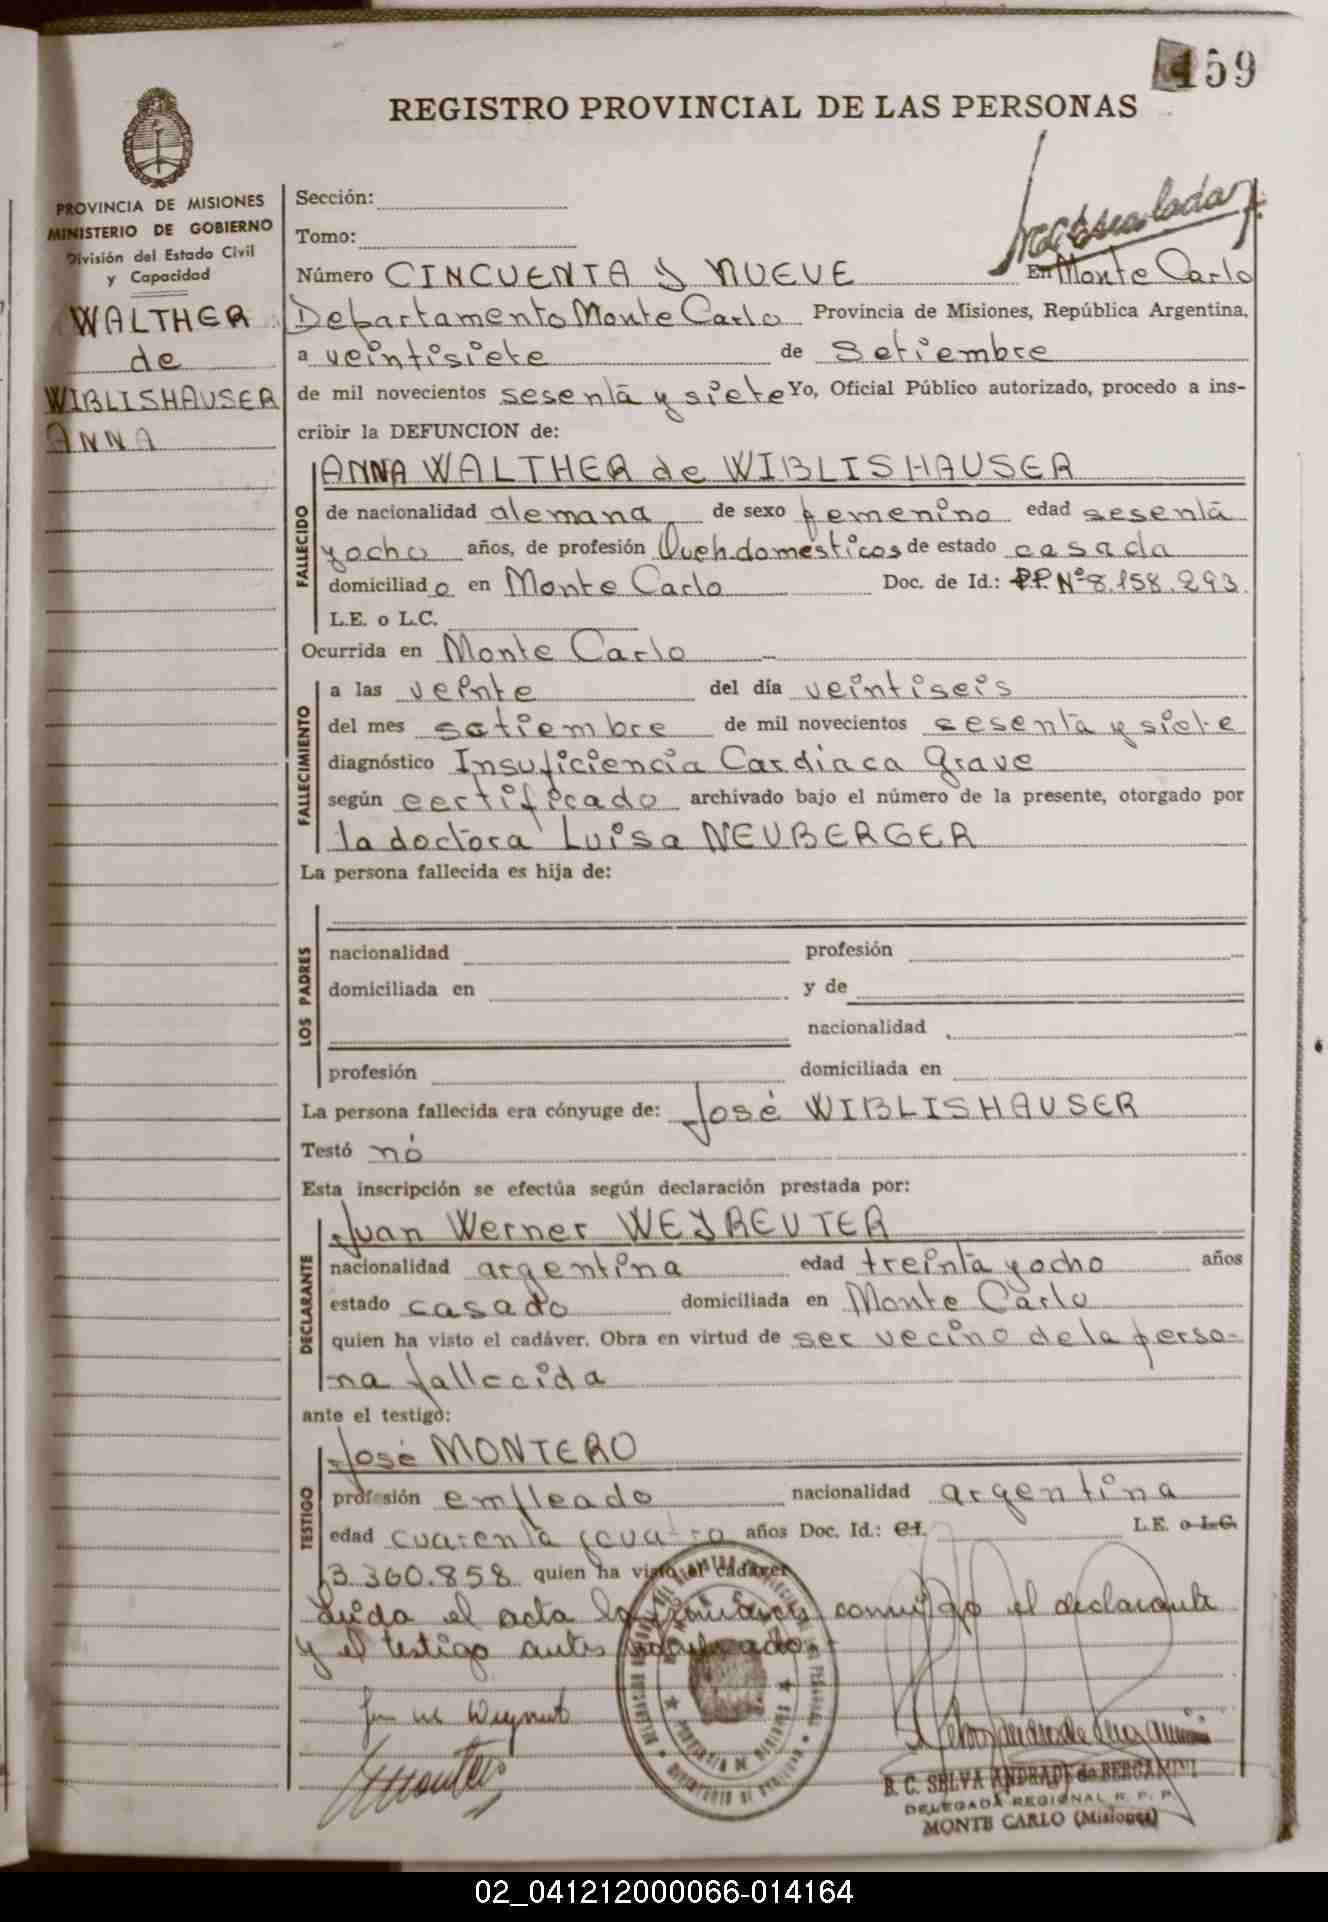 159
REGISTRO PROVINCIAL DE LAS PERSONAS
PROVINCIA DE MISIONES
MINISTERIO DE GOBIERNO
División del Estado Civil
y Capacidad
WALTHER
de
WIBLISHAUSER
ANNA
Sección:
Tomo:
Número CINCUENTA y NUEVE En Monte Carlo
Departamento Monte Carlo Provincia de Misiones, República Argentina,
a veintisiete de Setiembre
de mil novecientos sesenta y siete Yo, Oficial Público autorizado, procedo a ins-
cribir la DEFUNCION de:
FALLECIDO
ANNA WALTHER de WIBLISHAUSER
de nacionalidad alemana de sexo femenino edad sesenta
y ocho años, de profesión Queh.domesticos de estado casada
domiciliado en Monte Carlo Doc. de Id.: P.P. Nº 8.158.293.
L.E. o L.C.
Ocurrida en Monte Carlo
FALLECIMIENTO
a las veinte del día veintiseis
del mes setiembre de mil novecientos sesenta y siete
diagnóstico Insuficiencia Cardiaca Grave
según certificado archivado bajo el número de la presente, otorgado por
la doctora Luisa NEUBERGER
La persona fallecida es hija de:
LOS PADRES
nacionalidad profesión
domiciliada en y de
nacionalidad
profesión domiciliada en
La persona fallecida era cónyuge de: José WIBLISHAUSER
Testó nó
Esta inscripción se efectúa según declaración prestada por:
DECLARANTE
Juan Werner WEYREUTER
nacionalidad argentina edad treinta y ocho años
estado casado domiciliada en Monte Carlo
quien ha visto el cadáver. Obra en virtud de ser vecino de la perso-
na fallecida
ante el testigo:
TESTIGO
José MONTERO
profesión empleado nacionalidad argentina
edad cuarenta y cuatro años Doc. Id.: C.I. L.E. o L.C.
3.360.858 quien ha visto el cadáver
Leida el acta la firman conmigo el declarante
y el testigo antes
B. C. SELVA ANDRADE de BERGAMINI
DELEGADA REGIONAL R. P. P.
MONTE CARLO (Misiones)
02_041212000066-014164